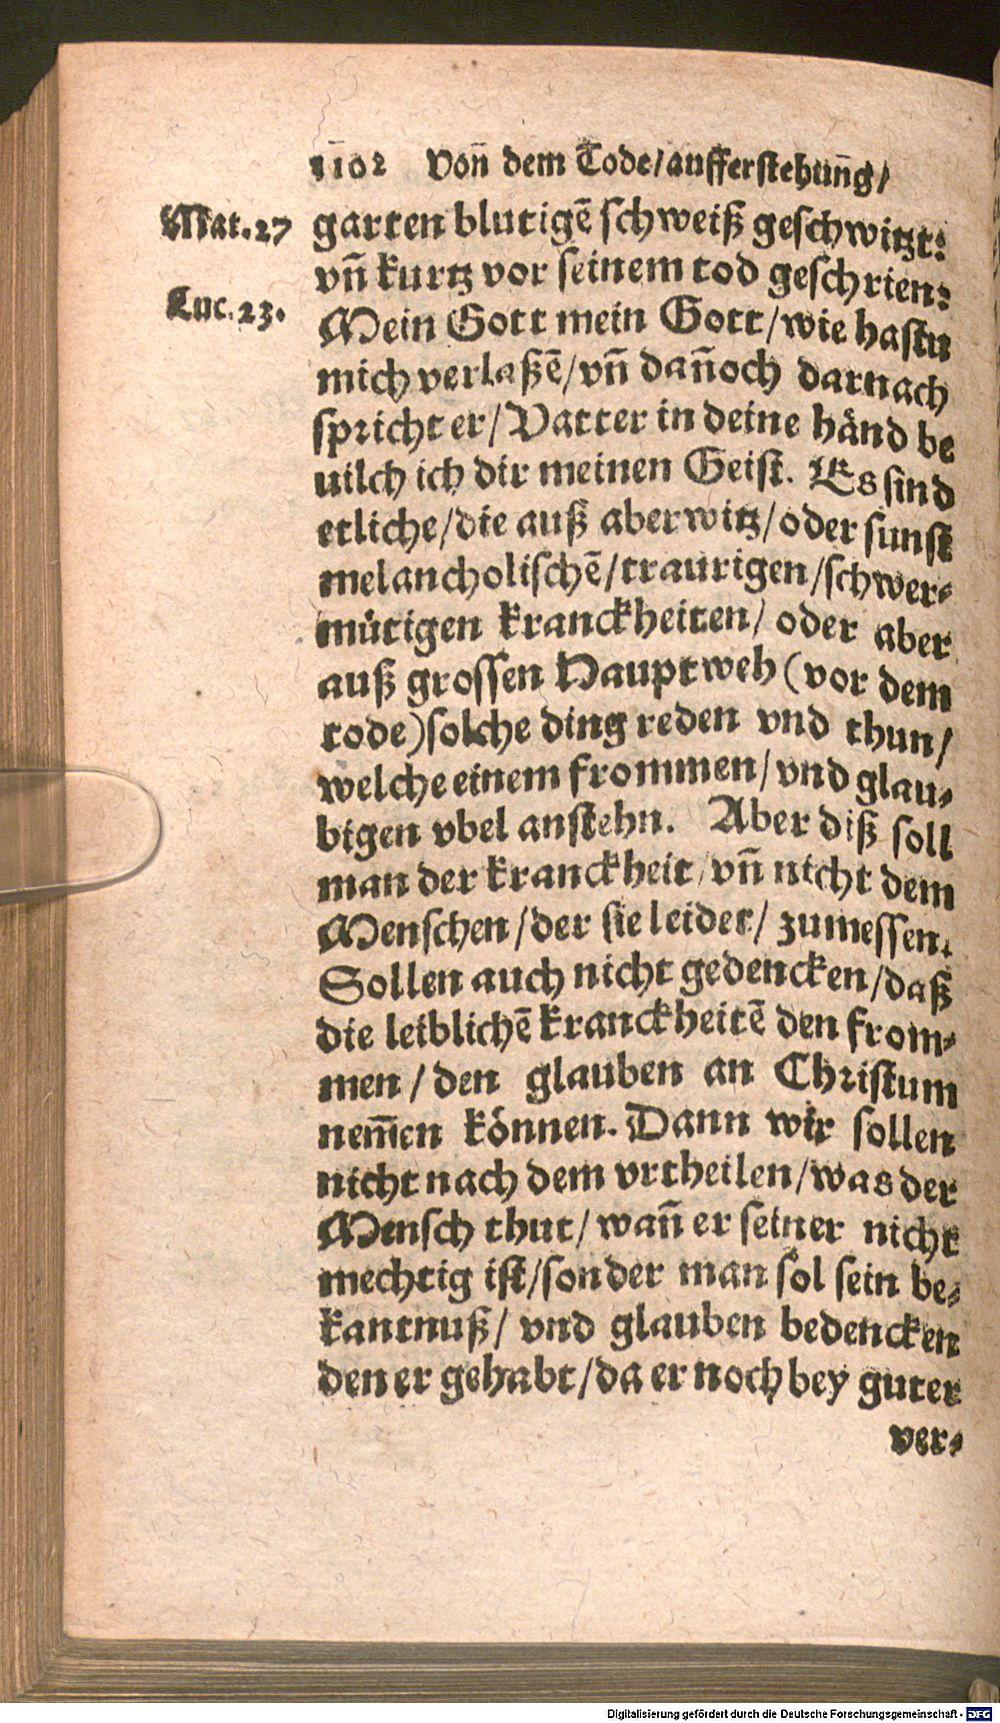 1102 Von̄ dem Tode/aufferstehun̄g/
Mat.27
garten blutigē schweiß geschwitzt:
vn̄ kurtz vor seinem tod geschrien:
Luc.23.
Mein Gott mein Gott/wie hastu
mich verlaßē/vn̄ dan̄och darnach
spricht er/Vatter in deine händ be
uilch ich dir meinen Geist. Es sind
etliche/die auß aberwitz/oder sunst
melancholischē/traurigen/schwer-
mütigen kranckheiten/ oder aber
auß grossen Hauptweh (vor dem
tode) solche ding reden vnd thun/
welche einem frommen/vnd glau-
bigen vbel anstehn. Aber diß soll
man der kranckheit/vn̄ nicht dem
Menschen/der sie leidet/ zumessen.
Sollen auch nicht gedencken/daß
die leiblichē kranckheitē den from-
men/den glauben an Christum
nem̄en können. Dann wir sollen
nicht nach dem vrtheilen/was der
Mensch thut/wan̄ er seiner nicht
mechtig ist/sonder man sol sein be-
kantnuß/ vnd glauben bedencken
den er gehabt/da er noch bey guter
ver-
Digitalisierung gefördert durch die Deutsche Forschungsgemeinschaft - DFG